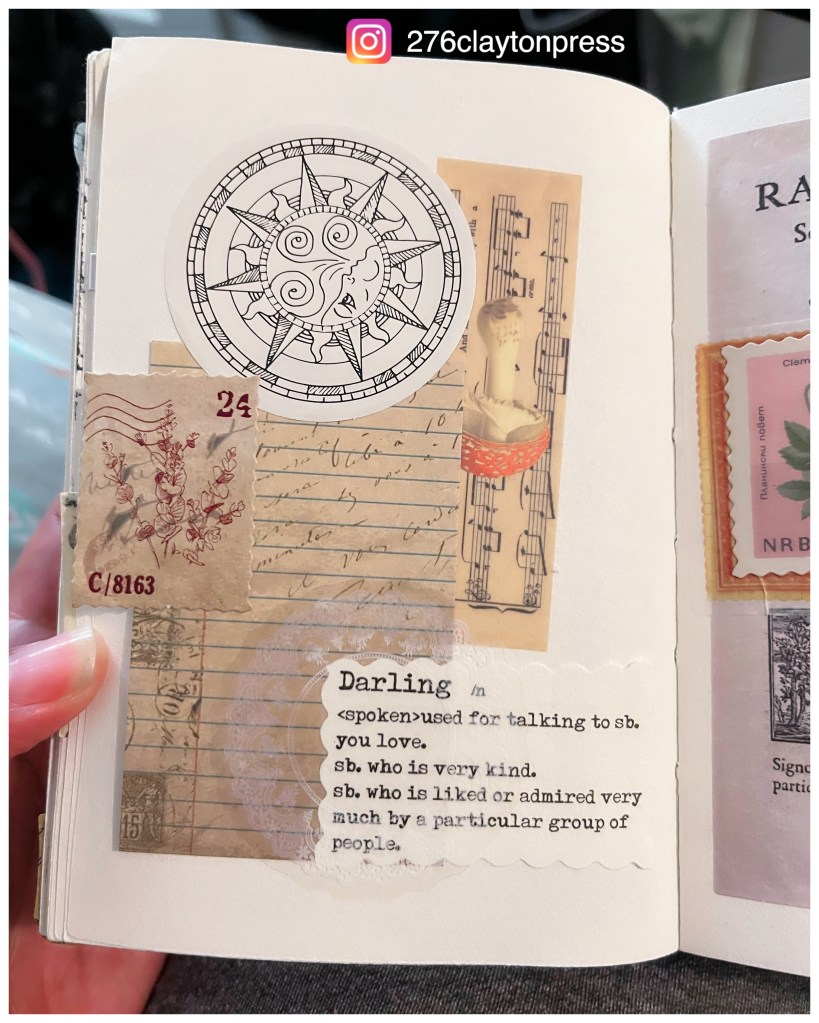 276claytonpress
with a
RA
24
And
Clem
Планински повет
NRB
minutes
C/8163
Darling /n
<spoken>used for talking to sb.
you love.
sb. who is very kind.
sb. who is liked or admired very
much by a particular group of
people.
15
Signo
partic